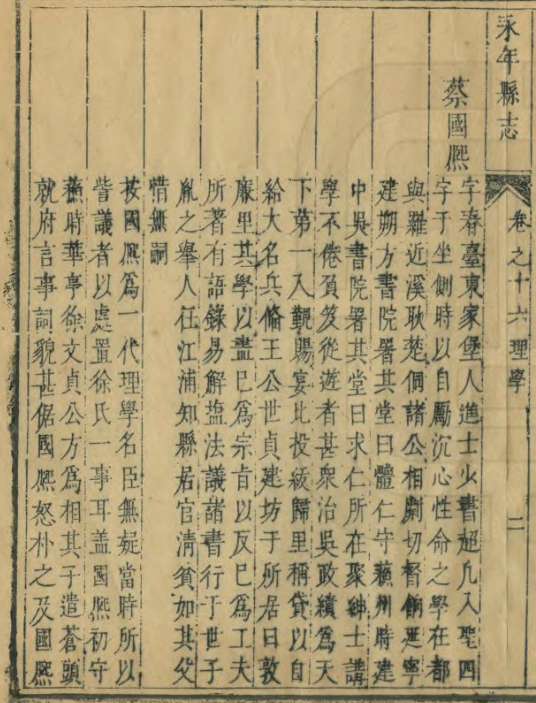 永年縣志
卷之十六理學
二
蔡國熈
字春臺東家堡人進士少書超凡入聖四
字于坐側時以自勵沉心性命之學在都
與羅近溪耿楚侗諸公相劘切督餉延寧
建朔方書院署其堂曰體仁守蘇州時建
中吳書院署其堂曰求仁所在聚紳士講
學不倦負笈從遊者甚衆治吳政績爲天
下第一入覲賜宴比投紱歸里稱貸以自
給大名兵備王公世貞建坊于所居曰敦
廉里其學以盡巳爲宗㫖以反巳爲工夫
所著有語錄易解盐法議諸書行于世子
胤之舉人任江浦知縣居官清貧如其父
惜無嗣
按國熈爲一代理學名臣無疑當時所以
訾議者以處置徐氏一事耳盖國熈初守
蘇時華亭徐文貞公方爲相其子遣蒼頭
就府言事詞貌甚倨國熈怒朴之及國熈